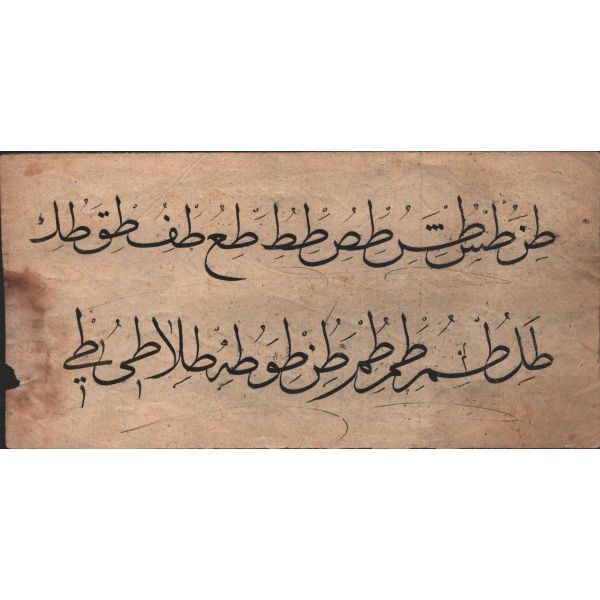 طز طس طش طص طط طع طف طق طك
طل طم طم طم طن طو طه طلا طى طي